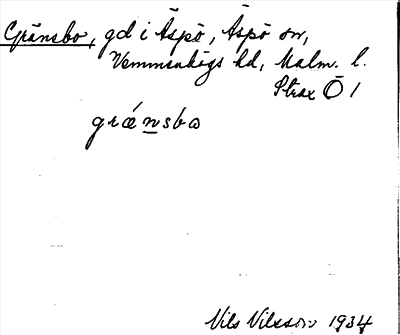 Gränsbo, gd i Äspö, Äspö sn,
Vemmenhögs hd, Malm. l.
Strax Ö 1
grænsbo
Nils Nilsson 1934